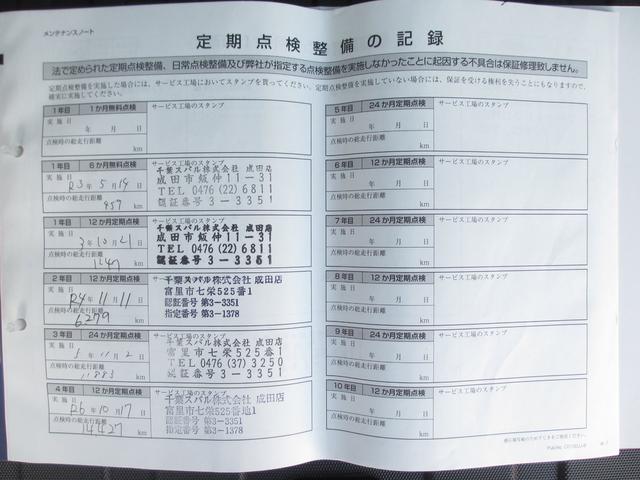 メンテナンスノート
定期点検整備の記録
法で定められた定期点検整備、日常点検整備及び弊社が指定する点検整備を実施しなかったことに起因する不具合は保証修理致しません。
定期点検整備を実施した場合には、サービス工場においてスタンプを貰ってください。定期点検整備を実施していない場合には、保証を受ける権利を失うことにもなりますので、
確実に実施してください。
1年目 1か月無料点検 サービス工場のスタンプ
実施日
年 月 日
点検時の総走行距離
km
1年目 6か月無料点検 サービス工場のスタンプ
実施日
R3年 5月 14日
点検時の総走行距離
957 km
千葉スバル株式会社 成田店
成田市飯仲11-31
TEL 0476 (22) 6811
認証番号 3-3351
1年目 12か月定期点検 サービス工場のスタンプ
実施日
3年 10月 21日
点検時の総走行距離
km
千葉スバル株式会社 成田店
成田市飯仲11-31
TEL 0476 (22) 6811
認証番号 3-3351
2年目 12か月定期点検
実施日
R4年 11月 11日
点検時の総走行距離
6279 km
千葉スバル株式会社 成田店
富里市七栄525番1
認証番号 第3-3351
指定番号 第3-1378
3年目 24か月定期点検 サービス工場のスタンプ
実施日
5年 11月 2日
点検時の総走行距離
km
千葉スバル株式会社 成田店
富里市七栄525番1
TEL 0476 (37) 3250
認証番号 3-3351
4年目 12か月定期点検 サービス工場のスタンプ
実施日
R6年 10月 17日
点検時の総走行距離
14427 km
千葉スバル株式会社 成田店
富里市七栄525番地1
認証番号 第3-3351
指定番号 第3-1378
5年目 24か月定期点検 サービス工場のスタンプ
実施日
年 月 日
点検時の総走行距離
km
6年目 12か月定期点検 サービス工場のスタンプ
実施日
年 月 日
点検時の総走行距離
km
7年目 24か月定期点検 サービス工場のスタンプ
実施日
年 月 日
点検時の総走行距離
km
8年目 12か月定期点検 サービス工場のスタンプ
実施日
年 月 日
点検時の総走行距離
km
9年目 24か月定期点検 サービス工場のスタンプ
実施日
年 月 日
点検時の総走行距離
km
10年目 12か月定期点検 サービス工場のスタンプ
実施日
年 月 日
点検時の総走行距離
km